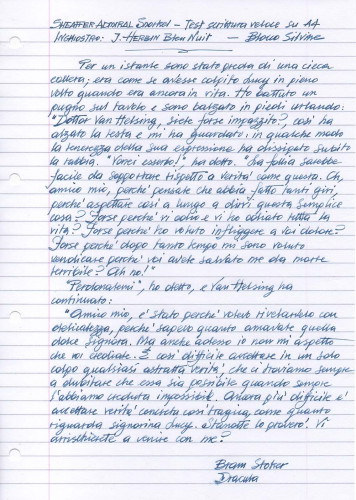 SHEAFFER ADMIRAL Snorkel - Test scrittura veloce su A4
INCHIOSTRO: J. HERBIN Bleu Nuit - Blocco Silvine
Per un istante sono stato preda di una cieca
collera; era come se avesse colpito Lucy in pieno
volto quando era ancora in vita. Ho battuto un
pugno sul tavolo e sono balzato in piedi urlando:
"Dottor Van Helsing, siete forse impazzito?", così ha
alzato la testa e mi ha guardato: in qualche modo
la tenerezza della sua espressione ha dissipato subito
la rabbia. "Vorrei esserlo!", ha detto. "La follia sarebbe
facile da sopportare rispetto a verità come questa. Oh,
amico mio, perché pensate che abbia fatto tanti giri,
perché aspettare così a lungo a dirvi questa semplice
cosa? Forse perché vi odio e vi ho odiato tutta la
vita? Forse perché ho voluto infliggere a voi dolore?
Forse perché dopo tanto tempo mi sono voluto
vendicare perché voi avete salvato me da morte
terribile? Oh no!"
"Perdonatemi", ho detto, e Van Helsing ha
continuato:
"Amico mio, è stato perché volevo rivelarvelo con
delicatezza, perché sapevo quanto amavate quella
dolce signora. Ma anche adesso io non mi aspetto
che voi crediate. È così difficile accettare in un solo
colpo qualsiasi astratta verità, che ci troviamo sempre
a dubitare che essa sia possibile quando sempre
l'abbiamo creduta impossibile. Ancora più difficile è
accettare verità concreta così tragica, come quanto
riguarda signorina Lucy. Stanotte lo proverò. Vi
arrischierete a venire con me?
Bram Stoker
Dracula